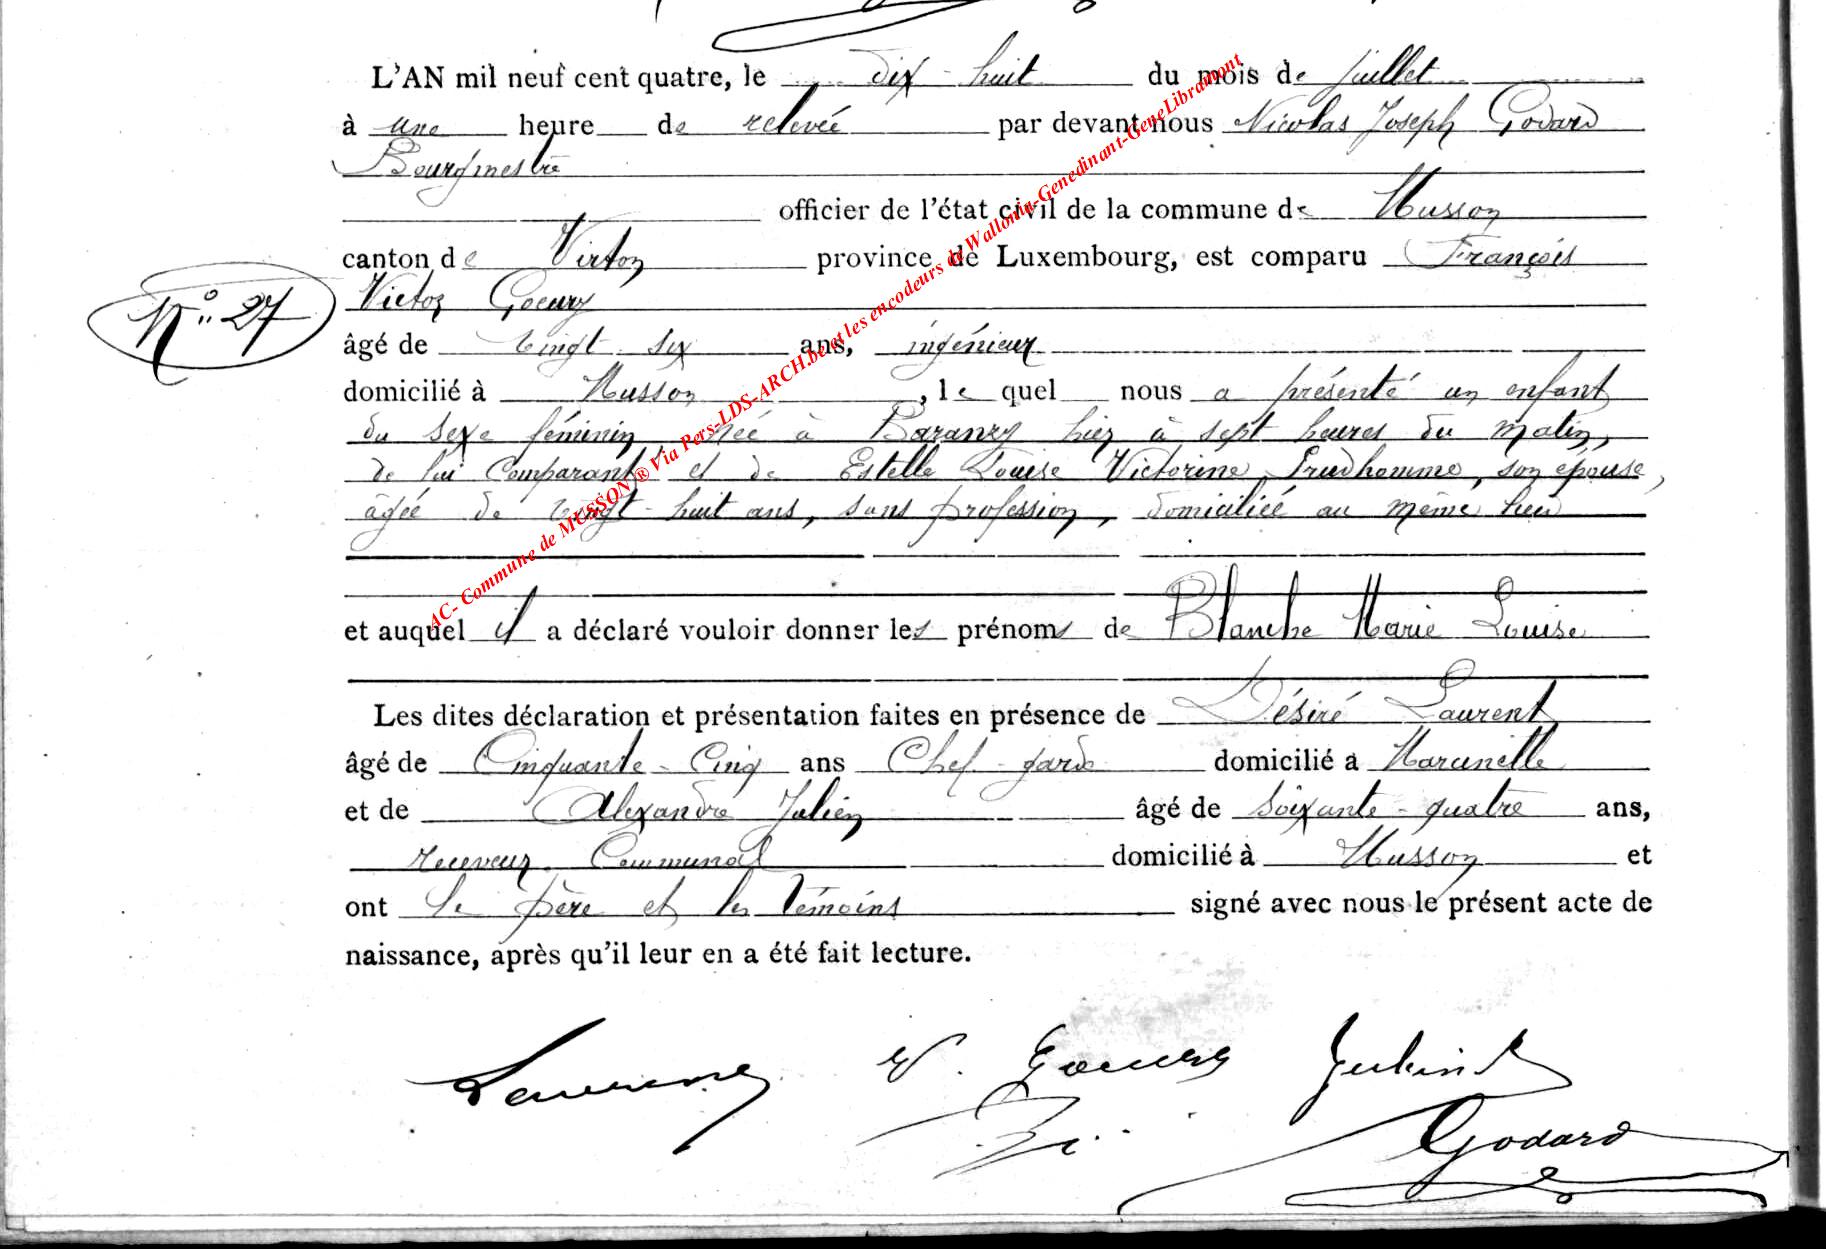 L'AN mil neuf cent quatre, le dix-huit du mois de juillet
à une heure de relevée par devant nous Nicolas Joseph Godard
Bourgmestre
officier de l'état civil de la commune de Musson
canton de Virton province de Luxembourg, est comparu François
N° 27
Victor Goeury
âgé de vingt-six ans, ingénieur
domicilié à Musson, lequel nous a présenté un enfant
du sexe féminin, née à Baranzy hier à sept heures du matin,
de lui Comparant et de Estelle Louise Victorine Prudhomme, son épouse,
âgée de vingt-huit ans, sans profession, domiciliée au même lieu
et auquel il a déclaré vouloir donner les prénoms de Blanche Marie Louise
Les dites déclaration et présentation faites en présence de Désiré Laurent
âgé de Cinquante-Cinq ans Chef-garde domicilié à Marcinelle
et de Alexandre Julien âgé de soixante-quatre ans,
receveur Communal domicilié à Musson et
ont le père et les témoins signé avec nous le présent acte de
naissance, après qu'il leur en a été fait lecture.
V. Goeury
Godard
AC- Commune de MUSSON ® Via Pers-LDS-ARCH.be et les encodeurs de Wallonia-Genedinant-GeneLibramont